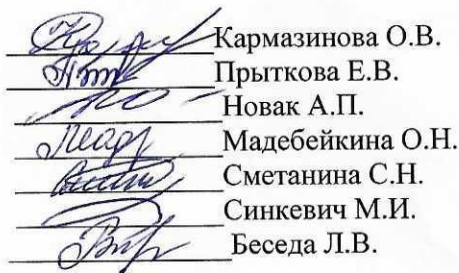 Кармазинова О.В.
Прыткова Е.В.
Новак А.П.
Мадебейкина О.Н.
Сметанина С.Н.
Синкевич М.И.
Беседа Л.В.